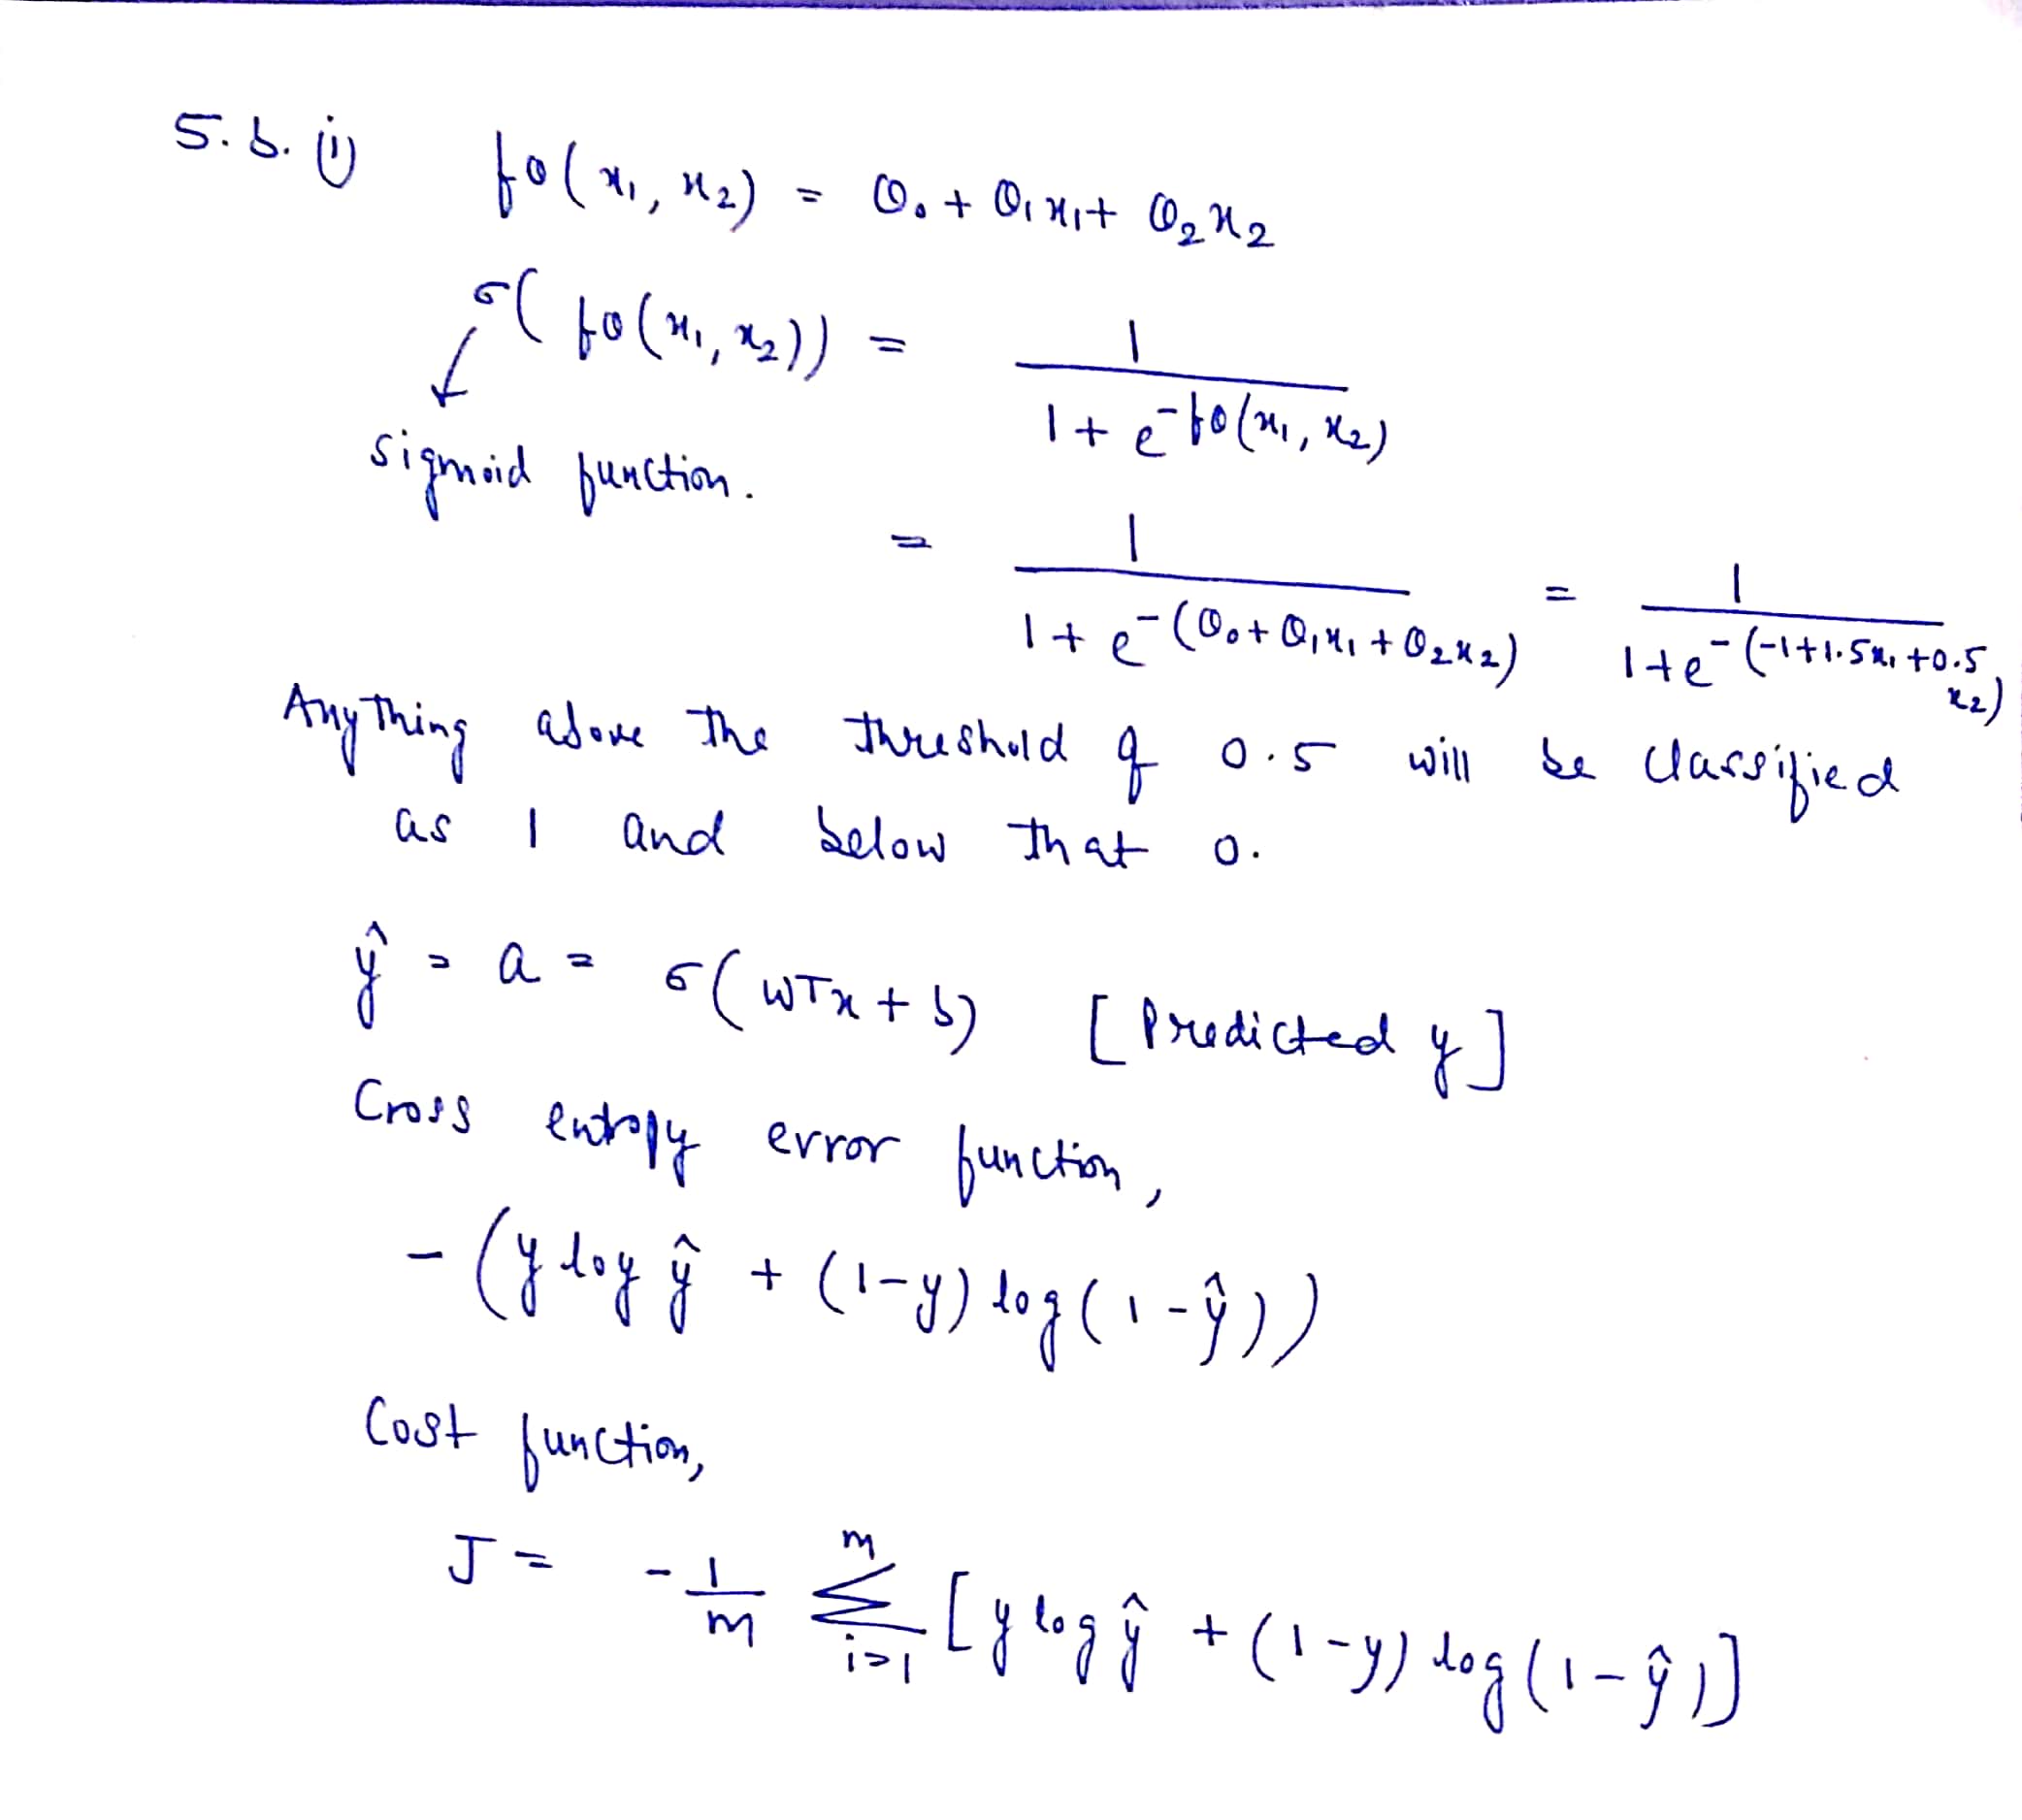 5. b. (i) fθ(x₁, x₂) = θ₀ + θ₁x₁ + θ₂x₂
σ(fθ(x₁, x₂)) = 1 / (1 + e^-fθ(x₁, x₂))
sigmoid function.
= 1 / (1 + e^-(θ₀ + θ₁x₁ + θ₂x₂)) = 1 / (1 + e^-(-1 + 1.5x₁ + 0.5x₂))
Anything above the threshold of 0.5 will be classified
as 1 and below that 0.
ŷ = a = σ(wTx + b) [Predicted y]
Cross entropy error function,
- (y log ŷ + (1-y) log(1-ŷ))
Cost function,
J = -1/m Σ_{i=1}^{m} [y log ŷ + (1-y) log(1-ŷ)]